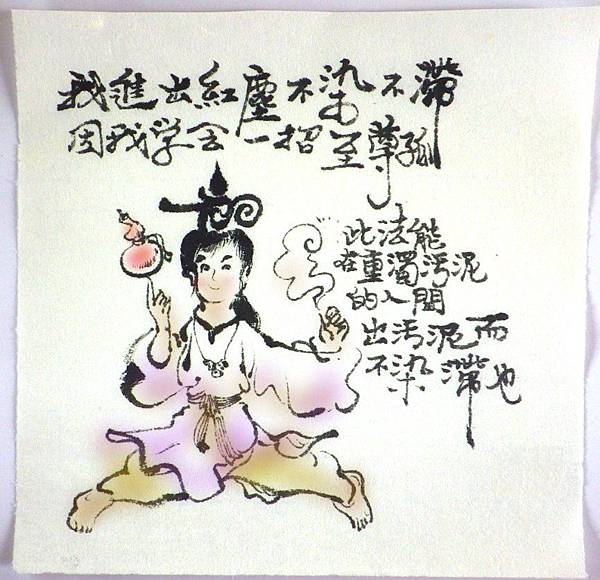 我進出紅塵不染不滯
因我学会一招至尊孤
此法能
在重濁污泥
的人間
出污泥而
不染滯也